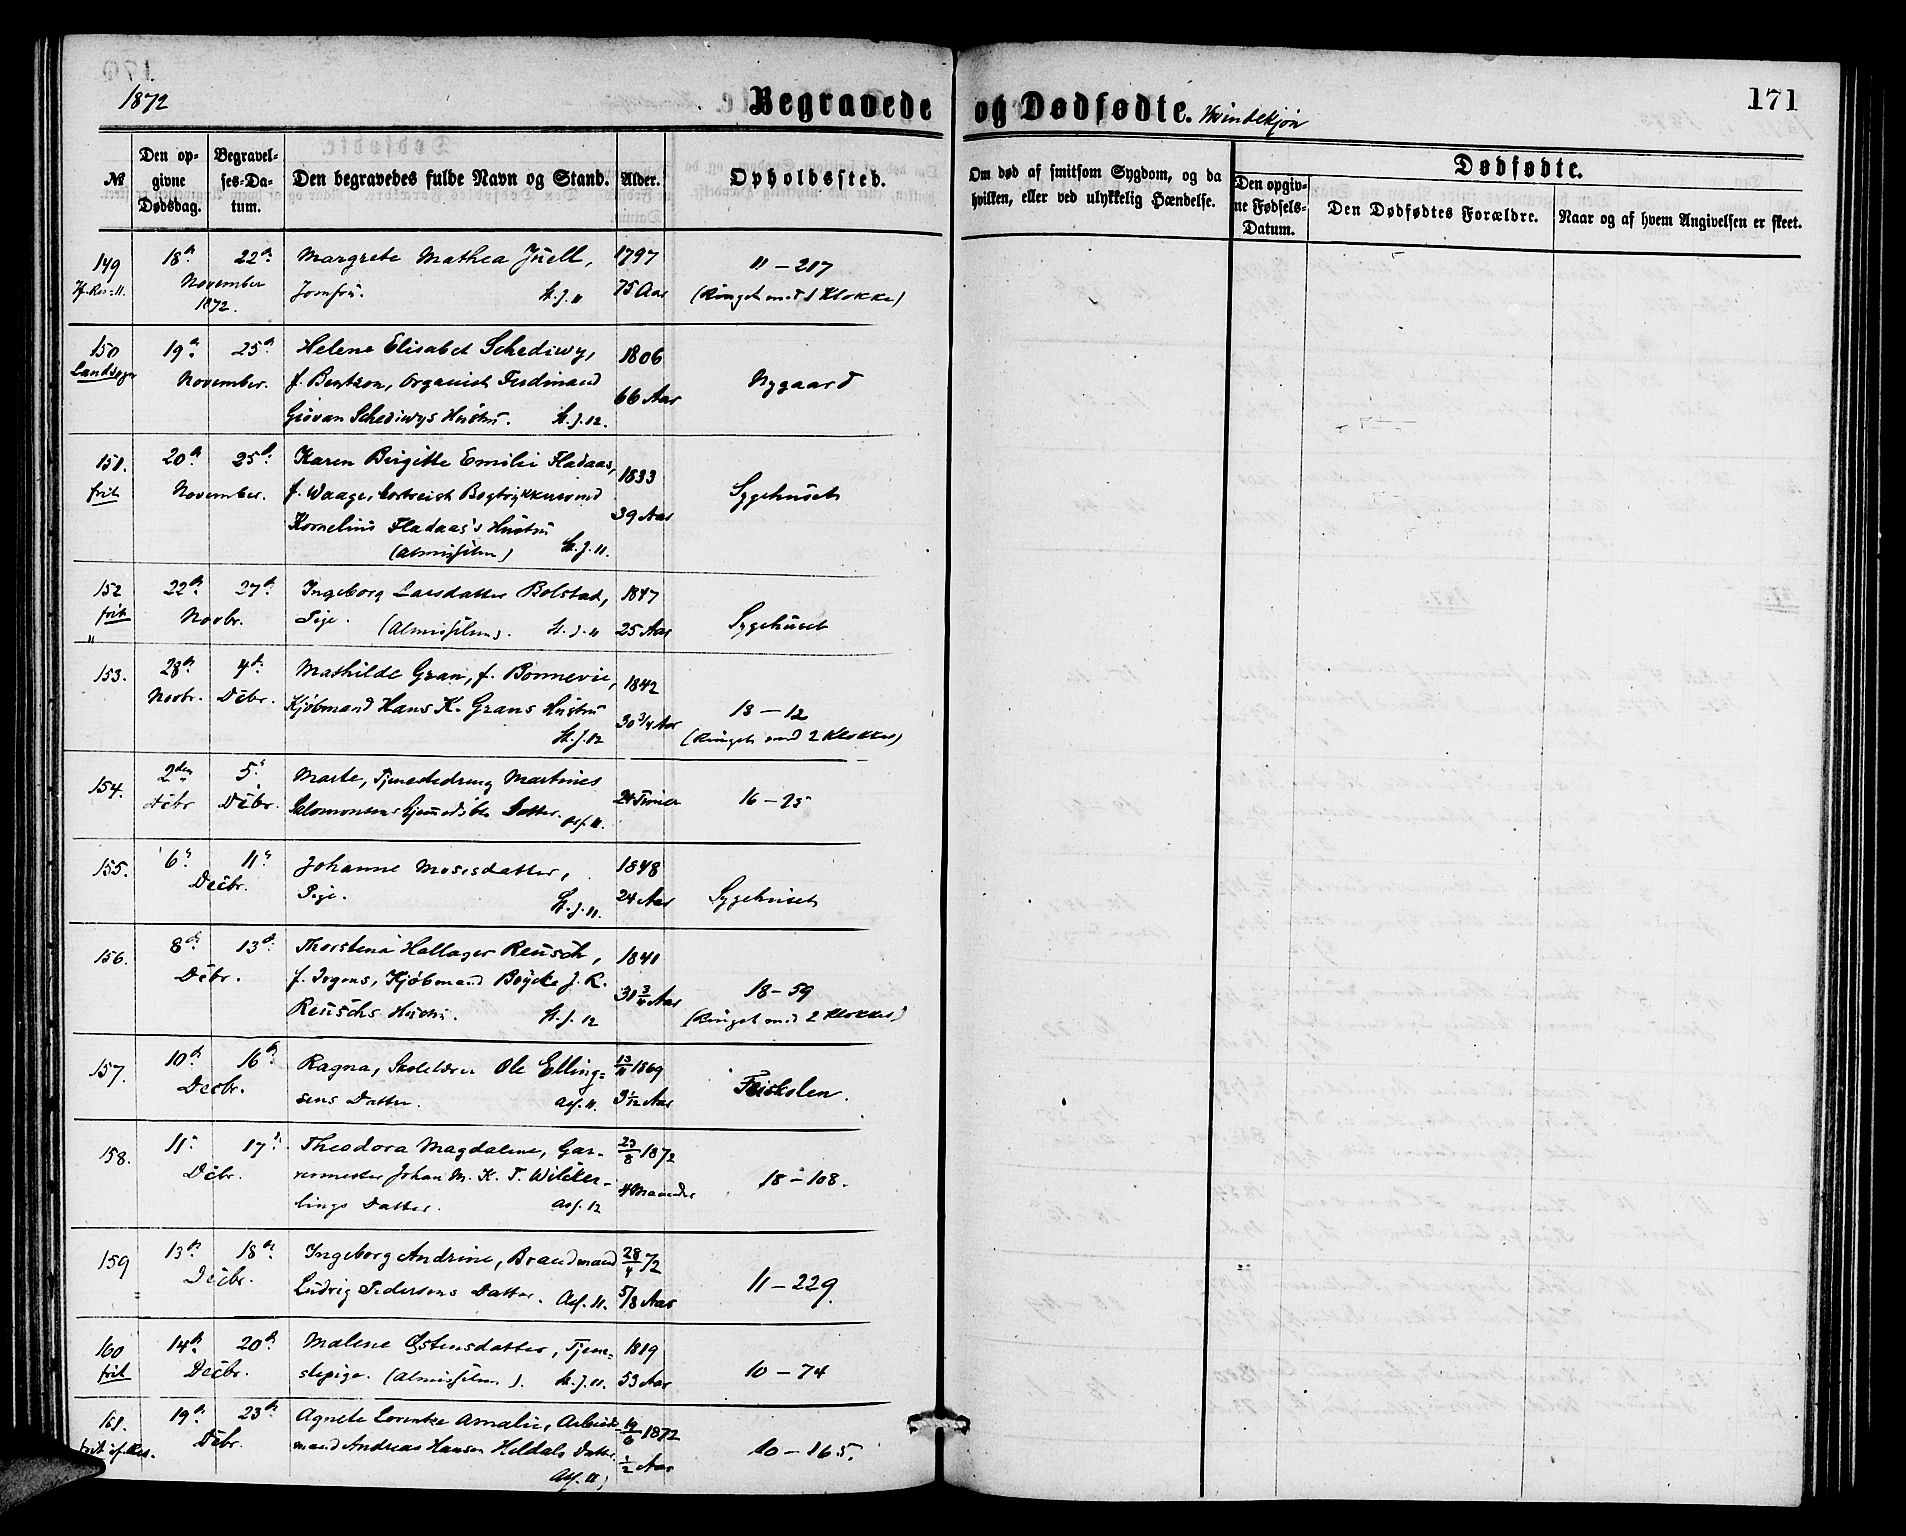 1872
Begravede og Dødfødte. Kvindekjøn
171
№
Den opgivne Dødsdag.
Begravelses-Datum.
Den begravedes fulde Navn og Stand.
Alder.
Opholdssted.
Om død af smitsom Sygdom, og da hvilken, eller ved ulykkelig Hændelse.
Dødfødte.
Den opgivne Fødsels-Datum.
Den Dødfødtes Forældre.
Naar og af hvem Angivelsen er skeet.
149 18de 22de Margrete Mathea Juell, 1797 11 – 217
November 1872. Jomfru. St. J. 11 75 Aar (Ringet med 1 Klokke)
150 19de 25de Helene Elisabet Schediwy, 1806
Landsogn November. f. Berntzen, Organist Ferdinand 66 Aar Nygaard
Giovan Schediwys Hustru. St. J. 12.
151. 20de 25de Karen Birgitte Emilie Fladaas, 1833
frit November. f. Waage, bortreist Bogtrykkersvend 39 Aar Sygehuset
Kornelius Fladaas's Hustru
(Almisselem) St. J. 11.
152 22de 27de Ingeborg Larsdatter Bolstad, 1847
frit Novbr. Pige. (Almisselem). St. J. 11 25 Aar Sygehuset
153. 28de 4de Mathilde Gran, f. Bonnevie, 1842
Novbr. Decbr. Kjøbmand Hans K. Grans Hustru 30 3/4 Aar 13 – 12
St. J. 12 (Ringet med 2 Klokker)
154. 2den 5. Marte, Tjenestedreng Martines
Decbr Decbr. Salomonsens Datter. 24 Timer 16 – 25
155. 6. 11. Johanne Mosesdatter, 1848
Decbr. Pige. St. J. 11. 24 Aar Sygehuset
156. 8de 13de Thorstena Hallager Reusch, 1841
Decbr. f. Irgens, Kjøbmand Böycke J. R. 31 3/4 Aar 18 – 59
Reuschs Hustru. St. J. 12 (Ringet med 2 Klokker)
157. 10de 16de Ragna, Skolelærer Ole Elling- 13/11 1869
Decbr. sens Datter. Ass. 11. 3 1/12 Aar Friskolen.
158. 11. 17. Theodora Magdalene, Gar- 23/8 1872
Decbr. vermester Johan M. K. T. Wilcker- 4 Maaneder 18 – 108.
lings Datter. Ass. 12
159 13de 18de Ingeborg Andrine, Brandmand 28/4 72
Decbr. Ludvig Pedersens Datter. Ass. 11. 5/8 Aar 11 – 229.
160 14de 20de Malene Østensdatter, Tjene- 1819
frit Decbr. stepige. (Almisselem). St. J. 11. 53 Aar 10 – 74
161. 19de 23de Agnete Lorentze Amalie, Arbeids- 19/6 1872
frit Decbr. mand Andreas Hansen Heldals Datter 1/2 Aar 10 – 165.
Ass. 11,